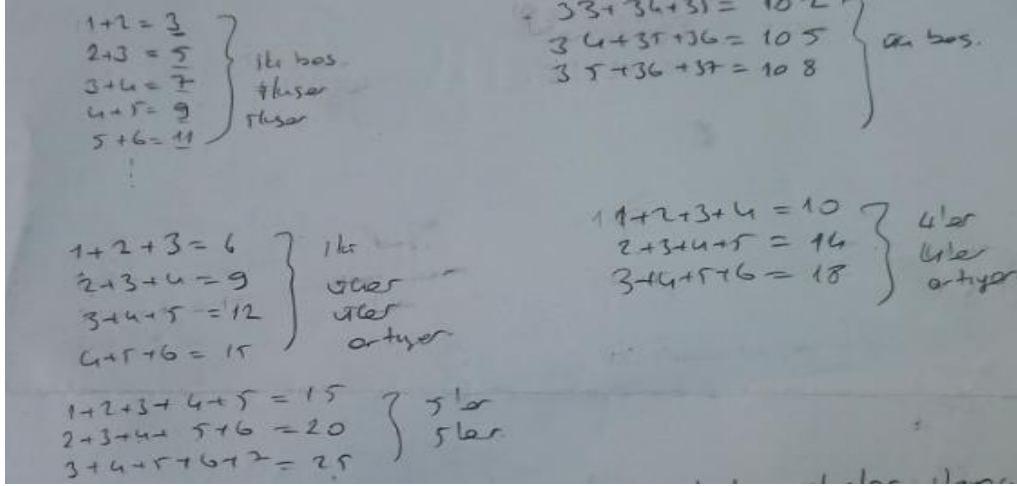 1+2 = 3
2+3 = 5
3+4 = 7
4+5 = 9
5+6 = 11
iki bas.
33+34+35 = 102
34+35+36 = 105
35+36+37 = 108
bas.
1+2+3 = 6
2+3+4 = 9
3+4+5 = 12
4+5+6 = 15
iki
üçer
üçer
artıyor
1+2+3+4 = 10
2+3+4+5 = 14
3+4+5+6 = 18
4'er
4'er
artıyor
1+2+3+4+5 = 15
2+3+4+5+6 = 20
3+4+5+6+7 = 25
5'er
5'er